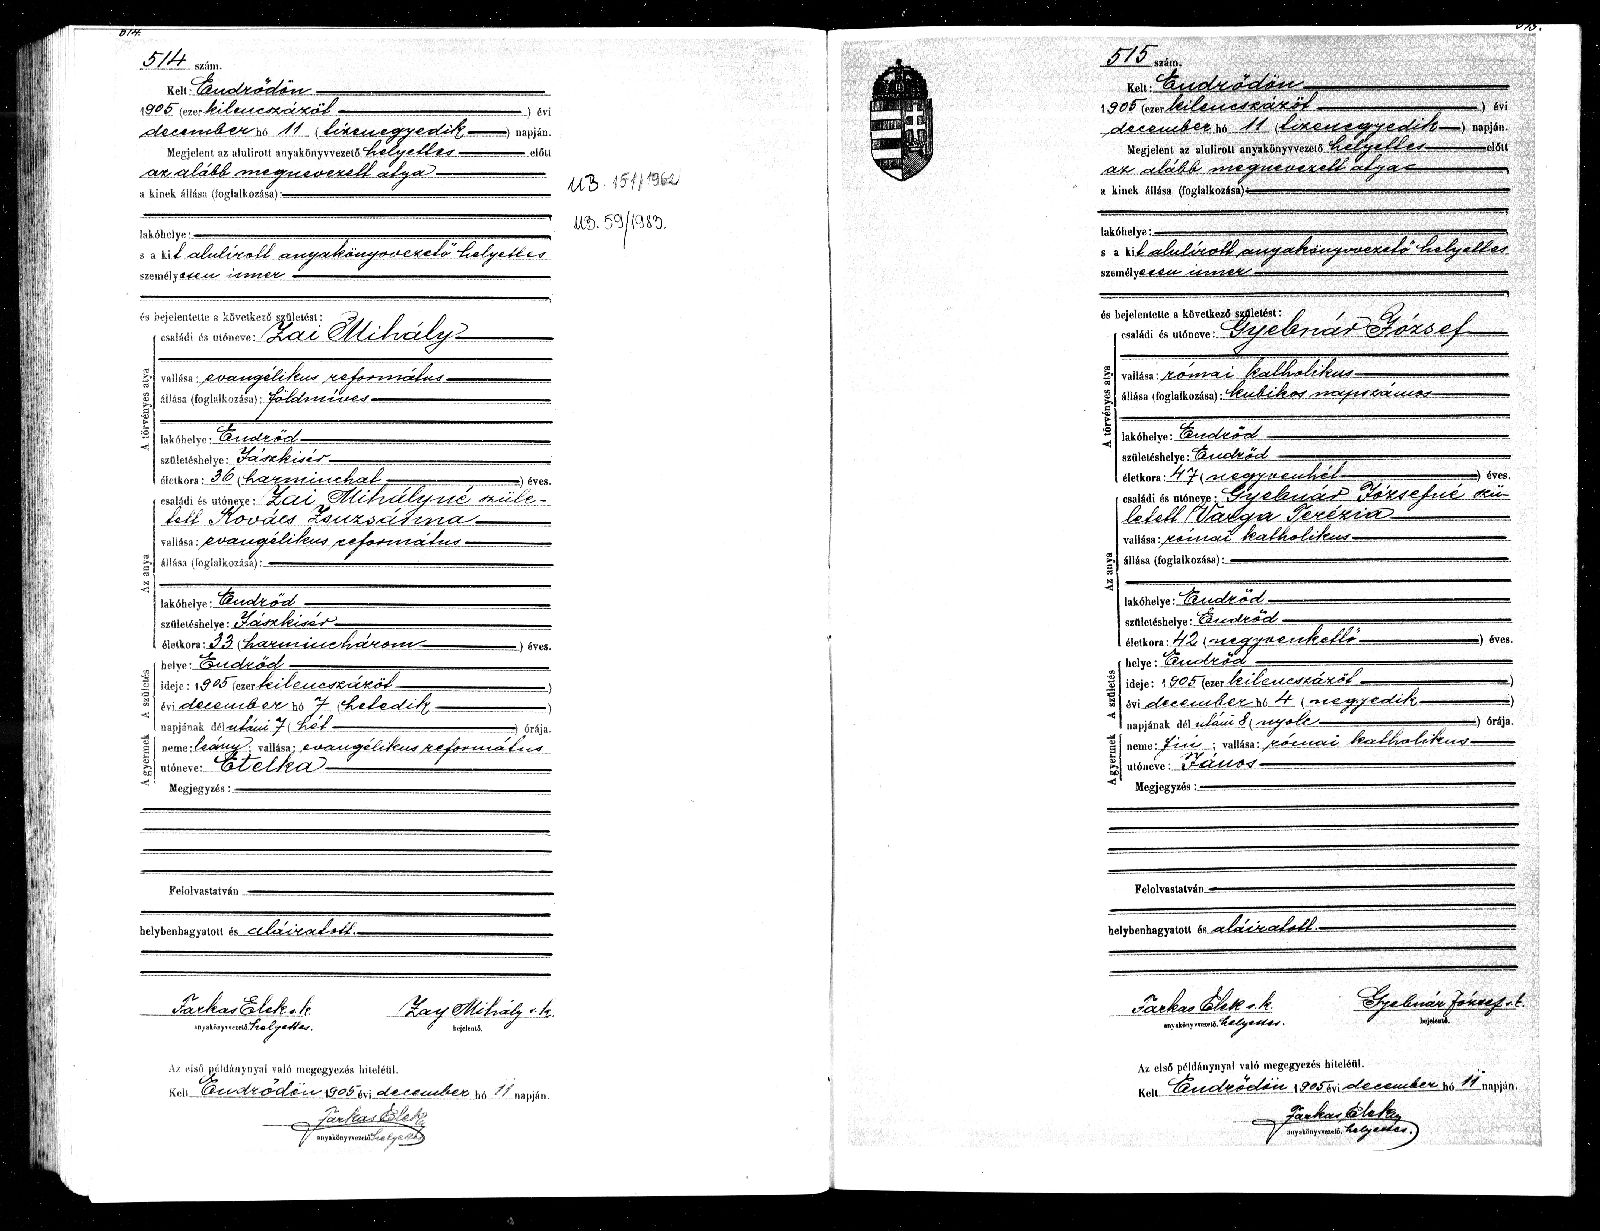 514
514 szám.
Kelt: Endrődön
1905 (ezer kilencszázöt ) évi
december hó 11 (tizenegyedik ) napján.
Megjelent az alulirott anyakönyvvezető helyettes előtt
az alább megnevezett atya
a kinek állása (foglalkozása):
lakóhelye:
s a kit alulírott anyakönyvvezető helyettes
személyesen ismer
és bejelentette a következő születést:
A törvényes atya
családi és utóneve: Zai Mihály
vallása: evangélikus református
állása (foglalkozása): földmíves
lakóhelye: Endrőd
születéshelye: Jászkisér
életkora: 36 (harminchat ) éves.
Az anya
családi és utóneve: Zai Mihályné szüle-
tett Kovács Zsuzsánna
vallása: evangélikus református
állása (foglalkozása):
lakóhelye: Endrőd
születéshelye: Jászkisér
életkora: 33 (harminchárom ) éves.
A születés
helye: Endrőd
ideje: 1905 (ezer kilencszázöt )
évi december hó 7 (hetedik )
napjának dél utáni 7 (hét ) órája.
A gyermek
neme: leány; vallása: evangélikus református
utóneve: Etelka
Megjegyzés:
Felolvastatván
helybenhagyatott és aláiratott.
Farkas Elek s. k. Zay Mihály s. k.
anyakönyvvezető helyettes. bejelentő.
Az első példánynyal való megegyezés hiteléül.
Kelt Endrődön 1905 évi december hó 11 napján.
Farkas Elek
anyakönyvvezető helyettes
UB. 151/1962
UB. 59/1983.
515.
515 szám.
Kelt: Endrődön
1905 (ezer kilencszázöt ) évi
december hó 11 (tizenegyedik ) napján.
Megjelent az alulirott anyakönyvvezető helyettes előtt
az alább megnevezett atya
a kinek állása (foglalkozása):
lakóhelye:
s a kit alulírott anyakönyvvezető helyettes
személyesen ismer
és bejelentette a következő születést:
A törvényes atya
családi és utóneve: Gyebnár József
vallása: római katholikus
állása (foglalkozása): kubikos napszámos
lakóhelye: Endrőd
születéshelye: Endrőd
életkora: 47 (negyvenhét ) éves.
Az anya
családi és utóneve: Gyebnár Józsefné szü-
letett Varga Terézia
vallása: római katholikus
állása (foglalkozása):
lakóhelye: Endrőd
születéshelye: Endrőd
életkora: 42 (negyvenkettő ) éves.
A születés
helye: Endrőd
ideje: 1905 (ezer kilencszázöt )
évi december hó 4 (negyedik )
napjának dél utáni 8 (nyolc ) órája.
A gyermek
neme: fiú; vallása: római katholikus
utóneve: János
Megjegyzés:
Felolvastatván
helybenhagyatott és aláiratott.
Farkas Elek s. k. Gyebnár József s. k.
anyakönyvvezető helyettes. bejelentő.
Az első példánynyal való megegyezés hiteléül.
Kelt Endrődön 1905 évi december hó 11 napján.
Farkas Elek
anyakönyvvezető helyettes.